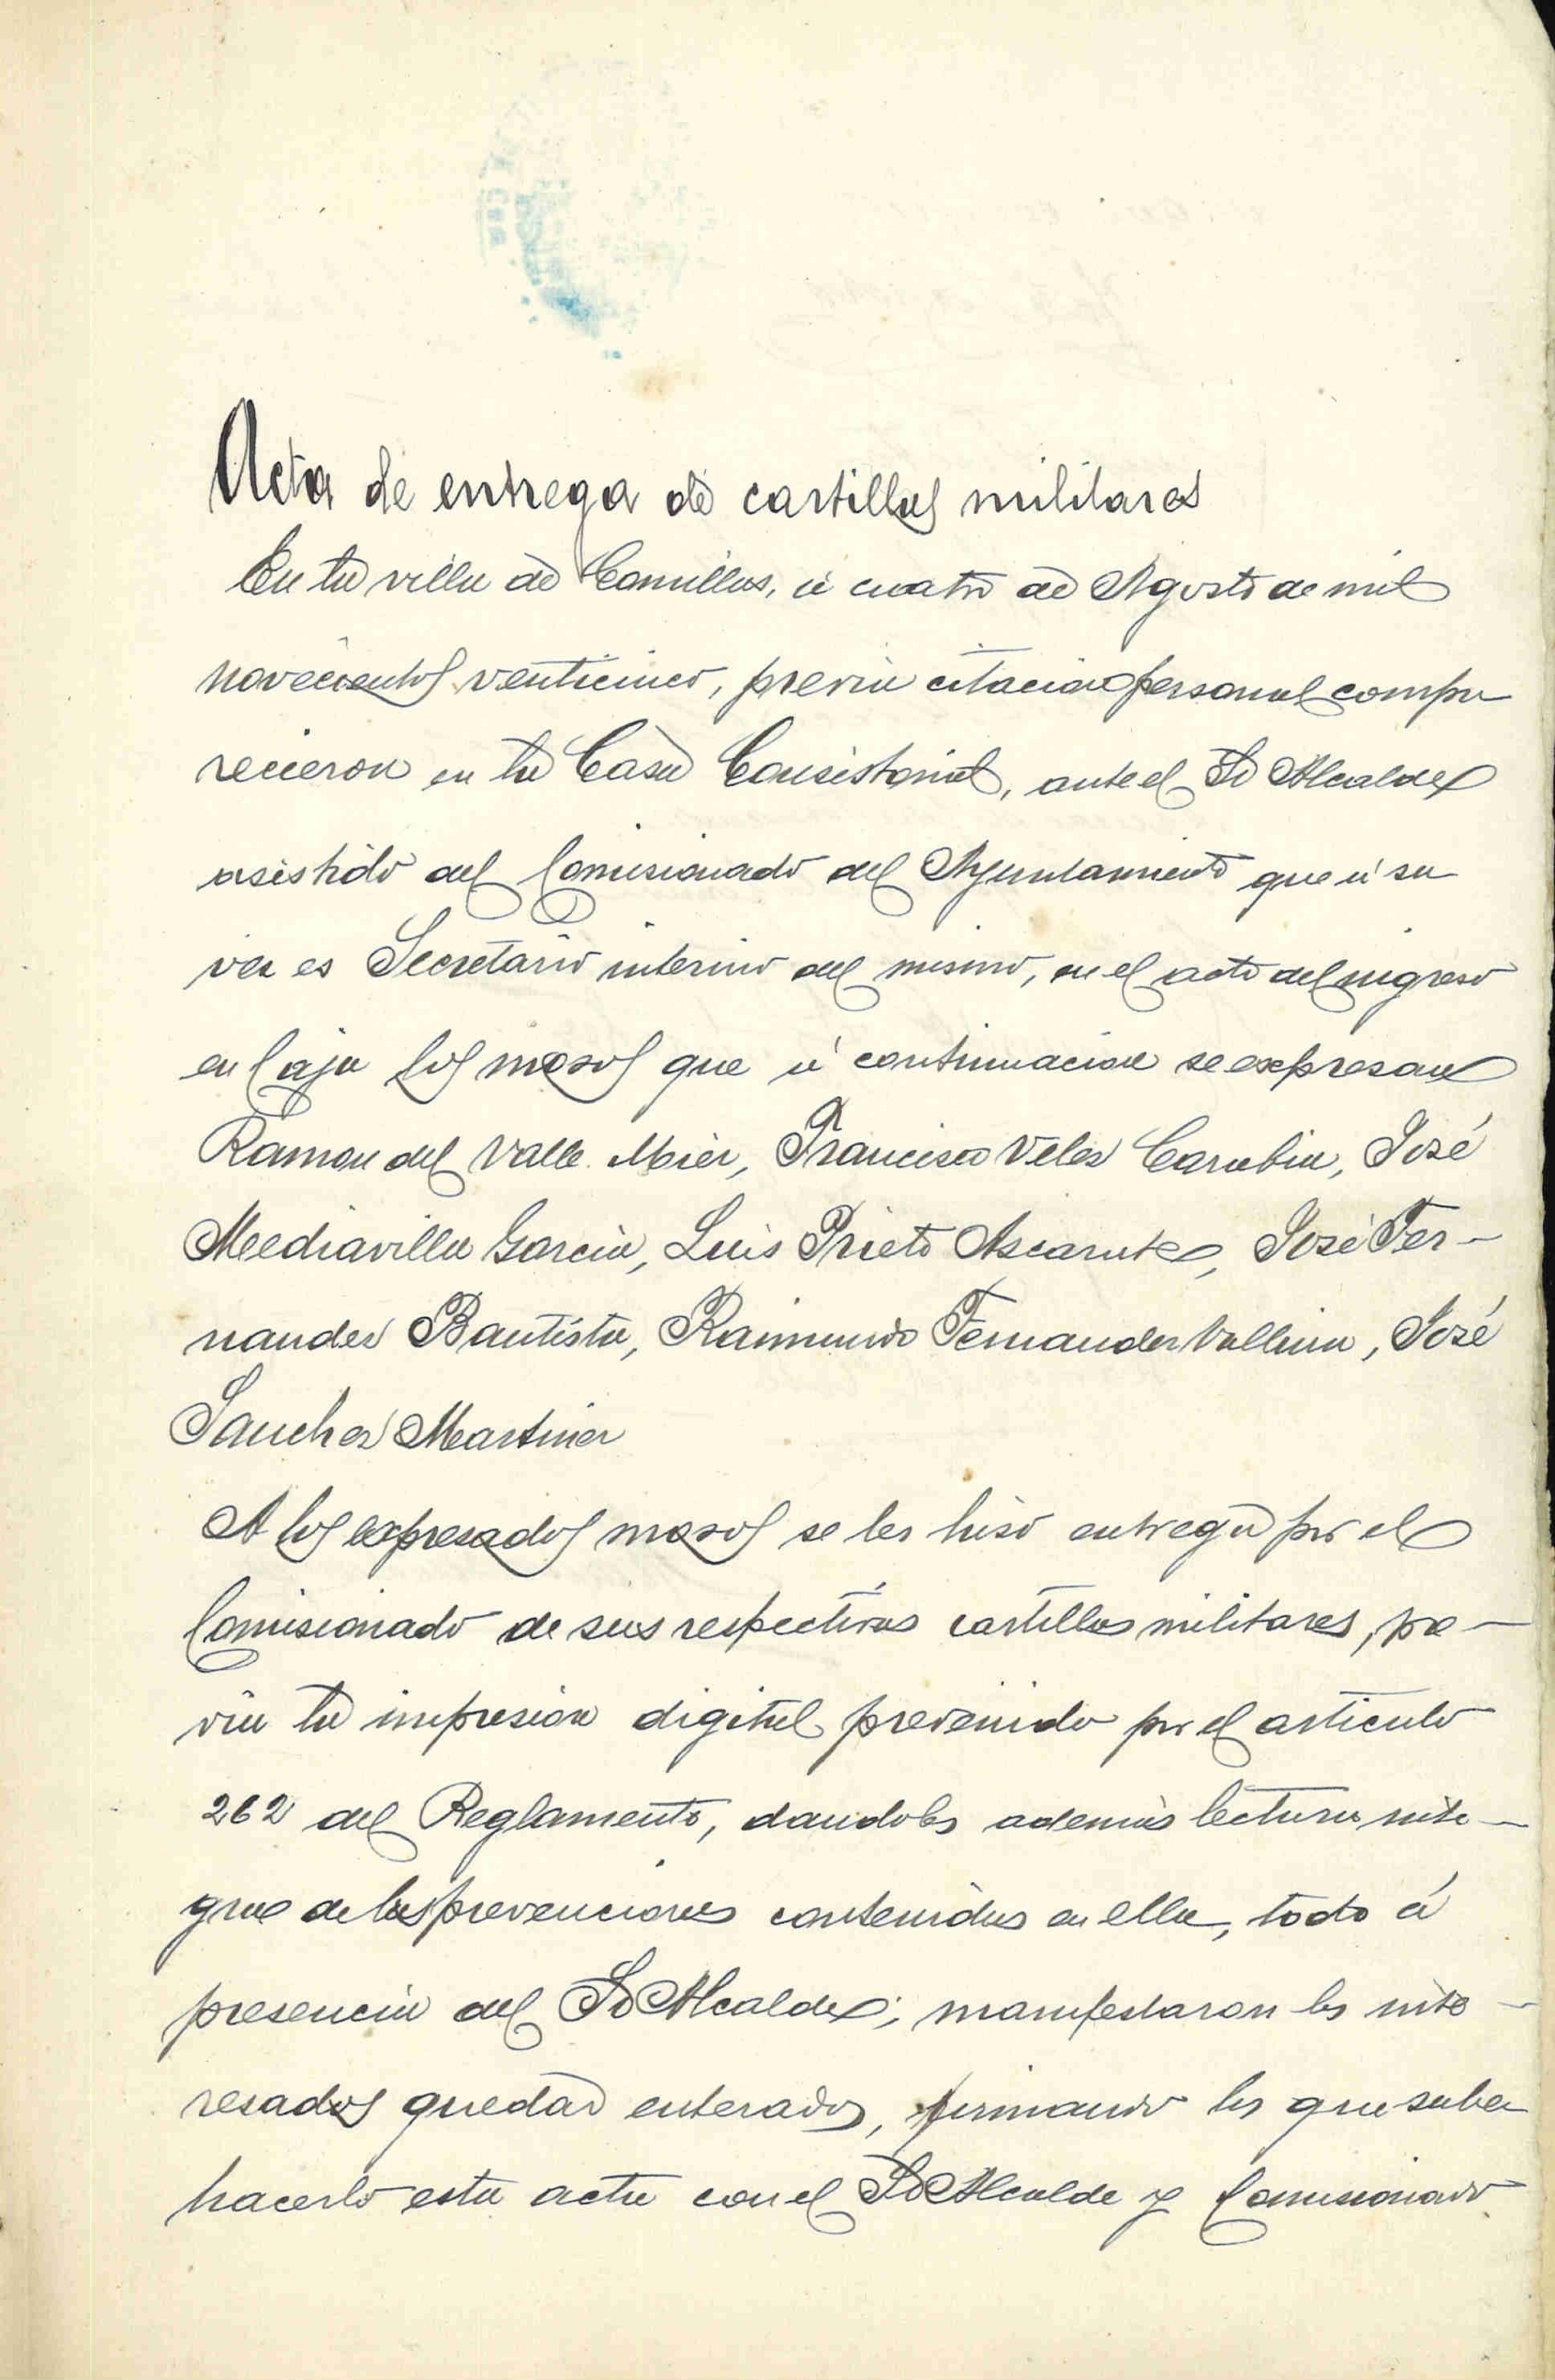 Acta de entrega de cartillas militares
En la villa de Comillas, á cuatro de Agosto de mil
novecientos venticinco, previa citacion personal compa
recieron en la Casa Consistorial, ante el Sr Alcalde
asistido del Comisionado del Ayuntamiento que á su
vez es Secretario interino del mismo, en el acto del ingreso
en Caja los mozos que á continuacion se expresan
Ramon del Valle Mier, Francisco Velez Carabia, José
Mediavilla Garcia, Luis Prieto Ascarate, José Fer-
nandez Bautista, Raimundo Fernandez Vallina, José
Sanchez Martinez
A los expresados mozos se les hizo entrega por el
Comisionado de sus respectivas cartillas militares, pre-
via la impresion digital prevenido por el articulo
262 del Reglamento, dandoles además lectura inte-
gra de las prevenciones contenidas en ella, todo á
presencia del Sr Alcalde; manifestaron los inte-
resados quedar enterados, firmando los que saben
hacerlo esta acta con el Sr Alcalde y Comisionado